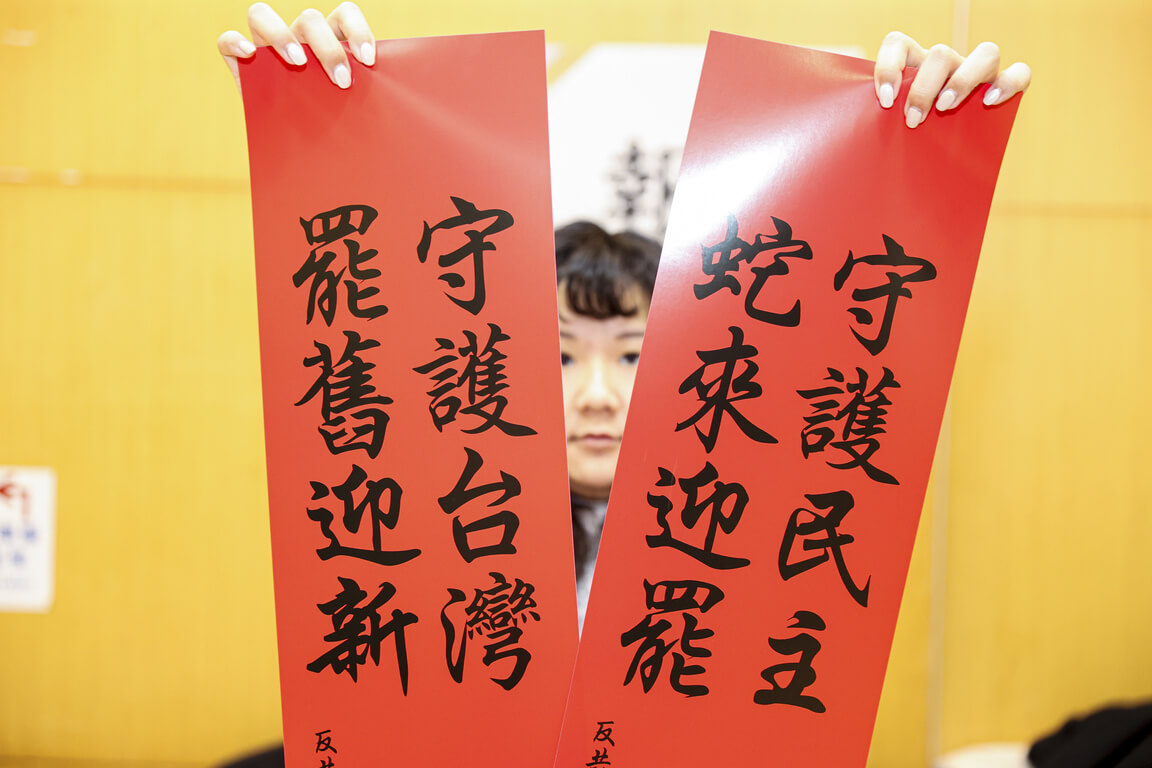 守護民主
蛇來迎罷
反
守護台灣
罷舊迎新
反